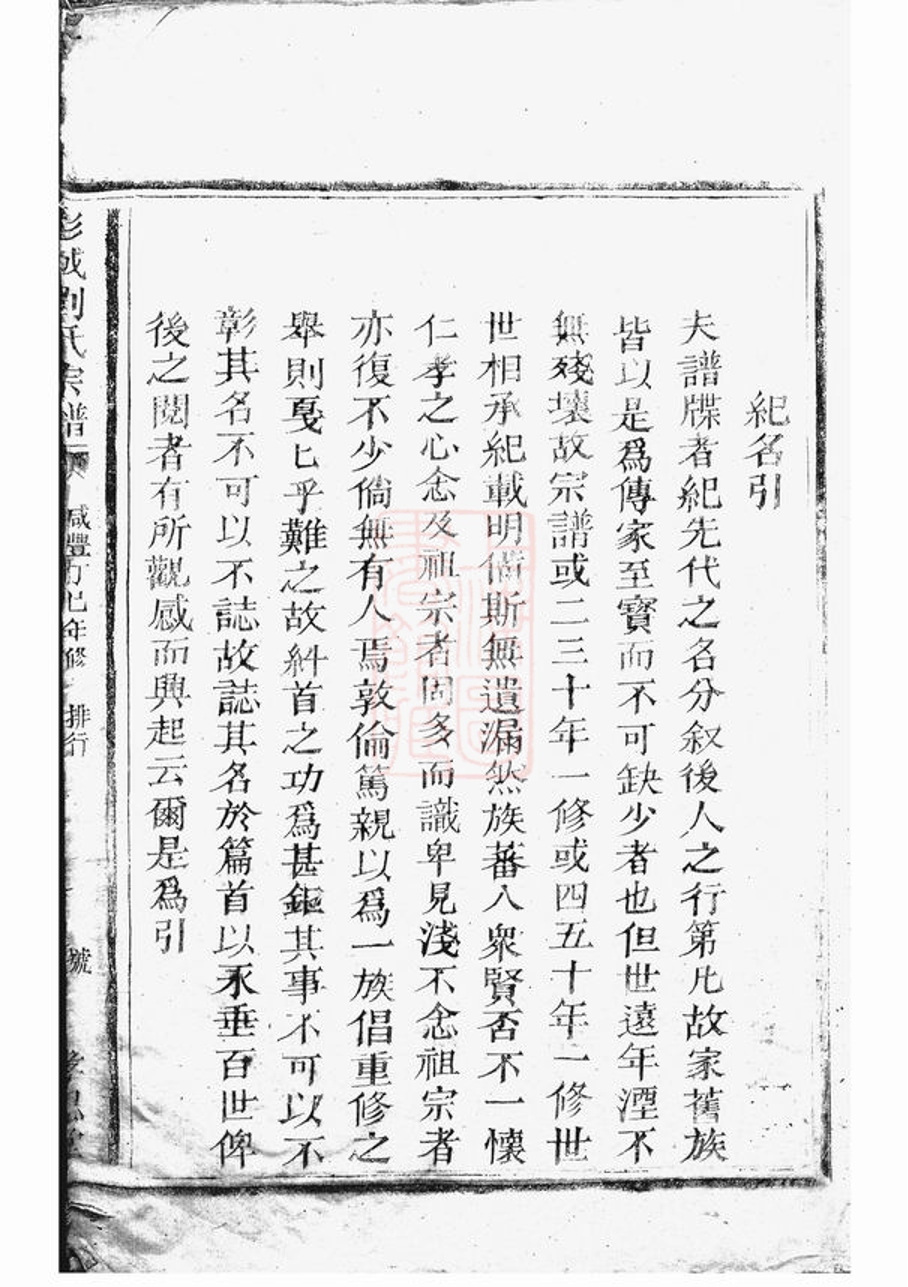 紀名引
夫譜牒者紀先代之名分叙後人之行第凡故家舊族
皆以是爲傳家至寶而不可缺少者也但世遠年湮不
無殘壞故宗譜或二三十年一修或四五十年一修世
世相承紀載明偹斯無遺漏然族蕃人衆賢否不一懷
仁孝之心念及祖宗者固多而識卑見淺不念祖宗者
亦復不少倘無有人焉敦倫篤親以爲一族倡重修之
舉則戛匕乎難之故糾首之功爲甚鉅其事不可以不
彰其名不可以不誌故誌其名於篇首以永垂百世俾
後之閱者有所觀感而興起云爾是爲引
彭城劉氏宗譜 咸豐丁巳年修 排行 號